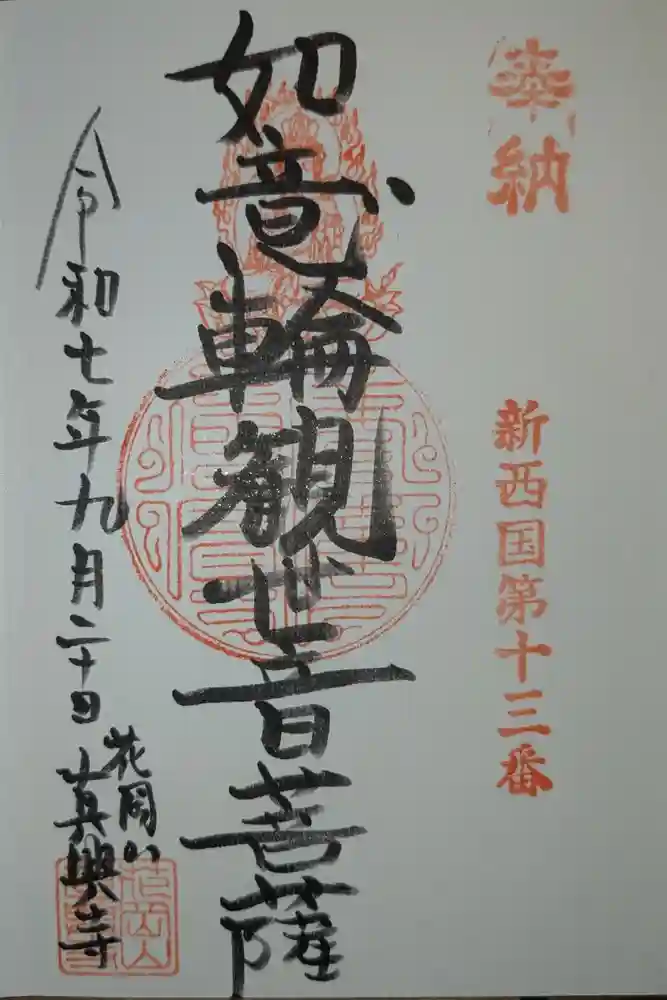 奉納
新西国第十三番
如意輪観世音菩薩
令和七年九月二十日
花岡山
真興寺